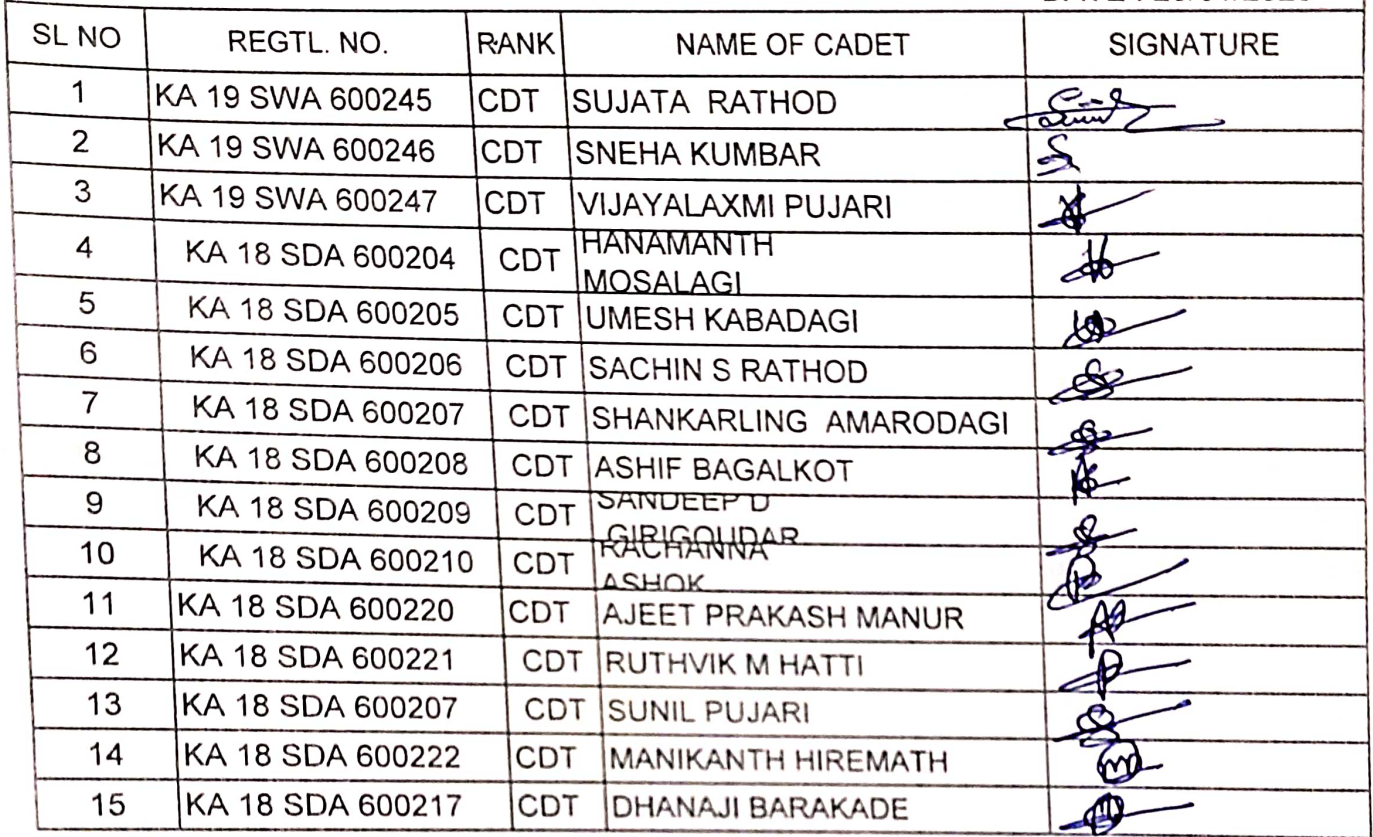 SL NO REGTL. NO. RANK NAME OF CADET SIGNATURE
1 KA 19 SWA 600245 CDT SUJATA RATHOD
2 KA 19 SWA 600246 CDT SNEHA KUMBAR
3 KA 19 SWA 600247 CDT VIJAYALAXMI PUJARI
4 KA 18 SDA 600204 CDT HANAMANTH
MOSALAGI
5 KA 18 SDA 600205 CDT UMESH KABADAGI
6 KA 18 SDA 600206 CDT SACHIN S RATHOD
7 KA 18 SDA 600207 CDT SHANKARLING AMARODAGI
8 KA 18 SDA 600208 CDT ASHIF BAGALKOT
9 KA 18 SDA 600209 CDT SANDEEP D
GIRIGOUDAR
10 KA 18 SDA 600210 CDT RACHANNA
ASHOK
11 KA 18 SDA 600220 CDT AJEET PRAKASH MANUR
12 KA 18 SDA 600221 CDT RUTHVIK M HATTI
13 KA 18 SDA 600207 CDT SUNIL PUJARI
14 KA 18 SDA 600222 CDT MANIKANTH HIREMATH
15 KA 18 SDA 600217 CDT DHANAJI BARAKADE